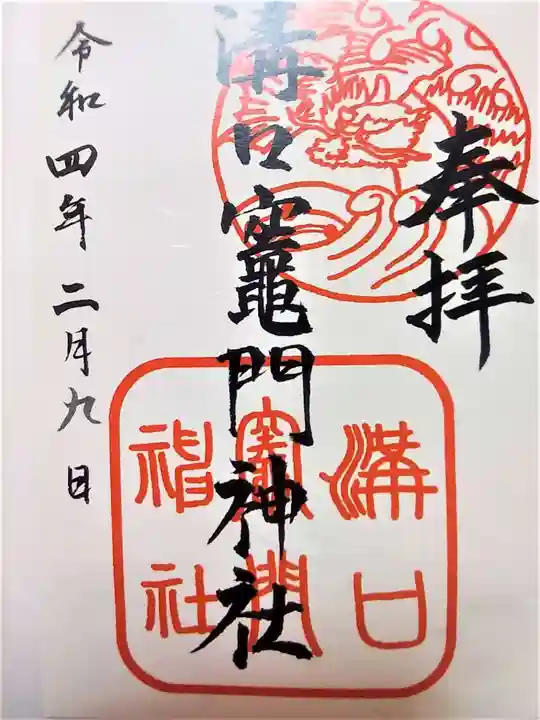 奉拝
溝口竈門神社
令和四年二月九日
溝口
竈門
神社